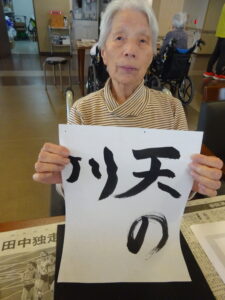 天の
川
田中独走